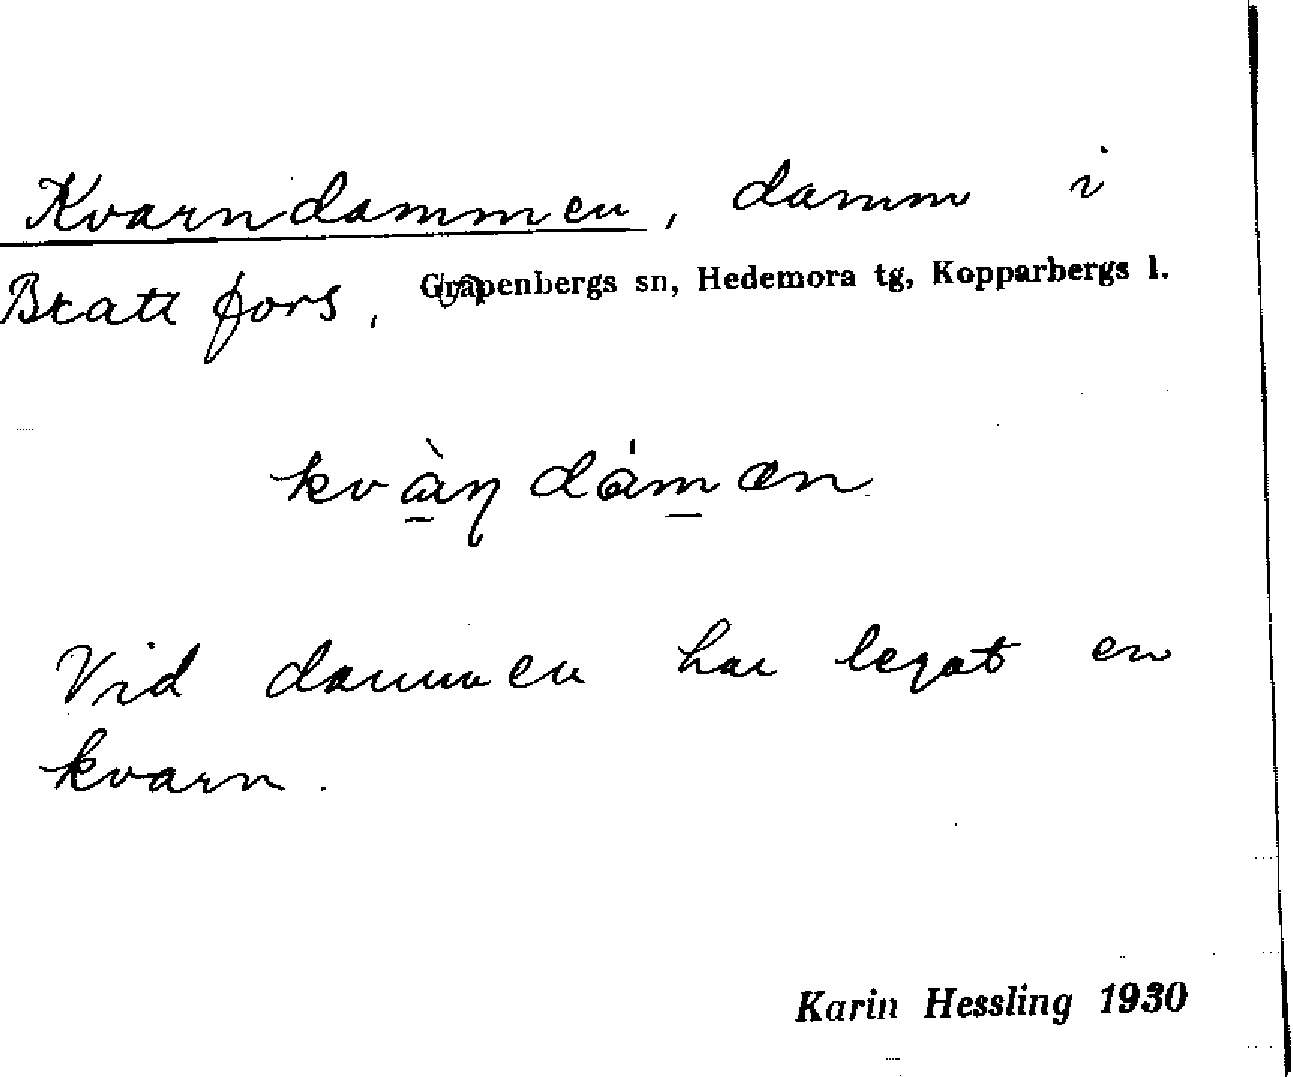 Kvarndammen, damm i
Brattfors, Grapenbergs sn, Hedemora tg, Kopparbergs l.
kvàṉ dám æn
Vid dammen har legat en
kvarn.
Karin Hessling 1930